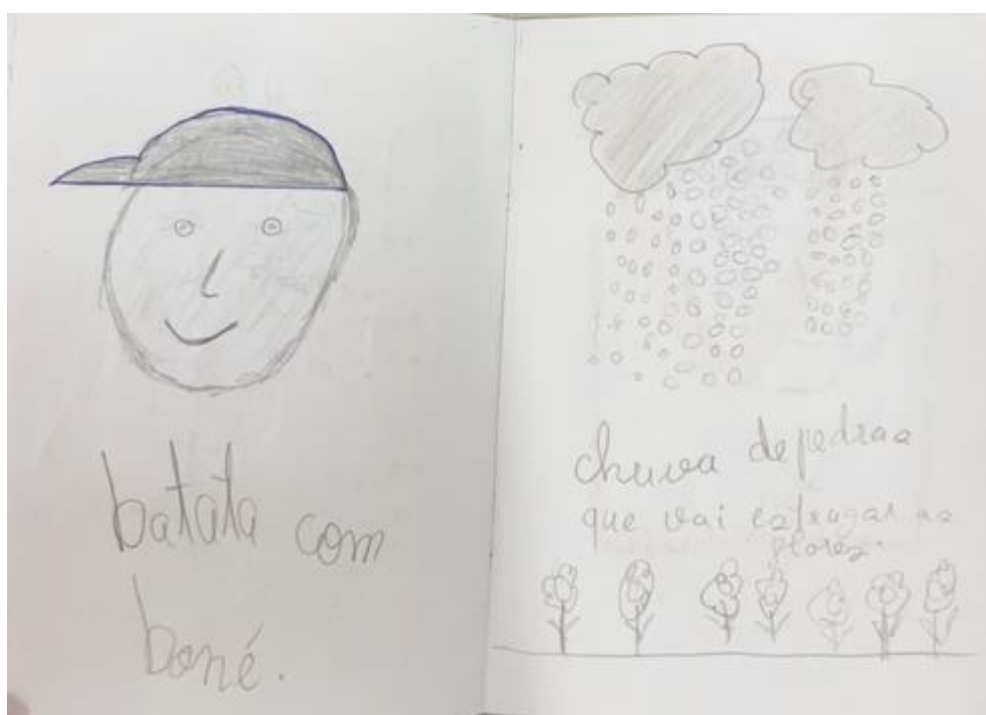 batata com
boné.
chuva de pedras
que vai estragar as
flores.